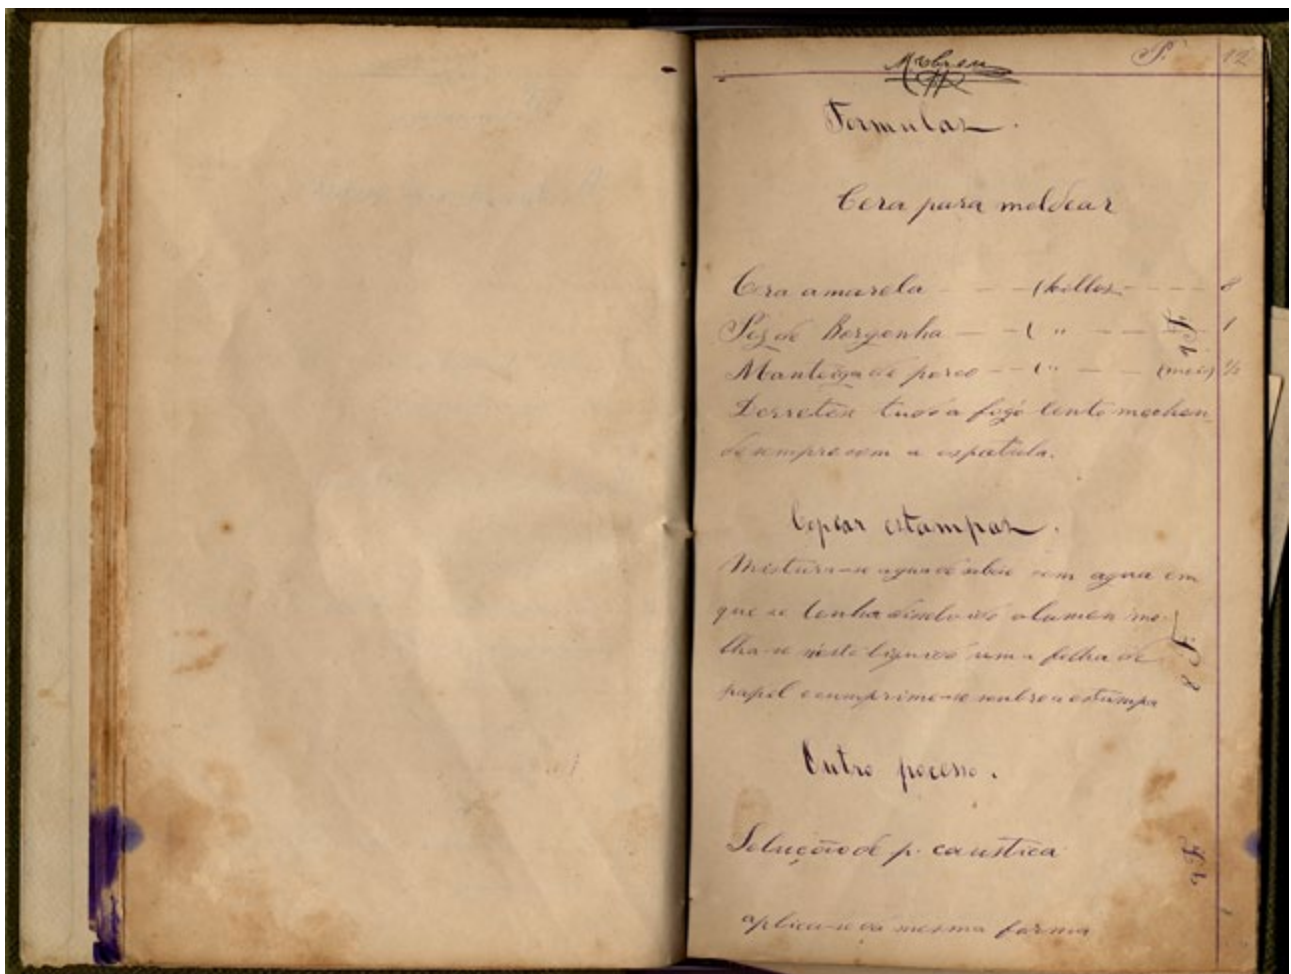 MAbreu P. 12
Formulas.
Cera para moldear
Cera amarela - - - (killos - - - - 8
Pez de Borgonha - - - ( " - - - 1
Manteiga de porco - - ( " - - (meio) ½
Derrete-se tudo a fogo lento mechen
do sempre com a espatula.
Copiar estampas.
Mistura-se agua de sabão com agua em
que se tenha dissolvido alumen mo-
lha-se n'este liquido uma folha de
papel e comprime-se sobre a estampa
Outro pocesso.
Solução de p. caustica
aplica-se da mesma forma